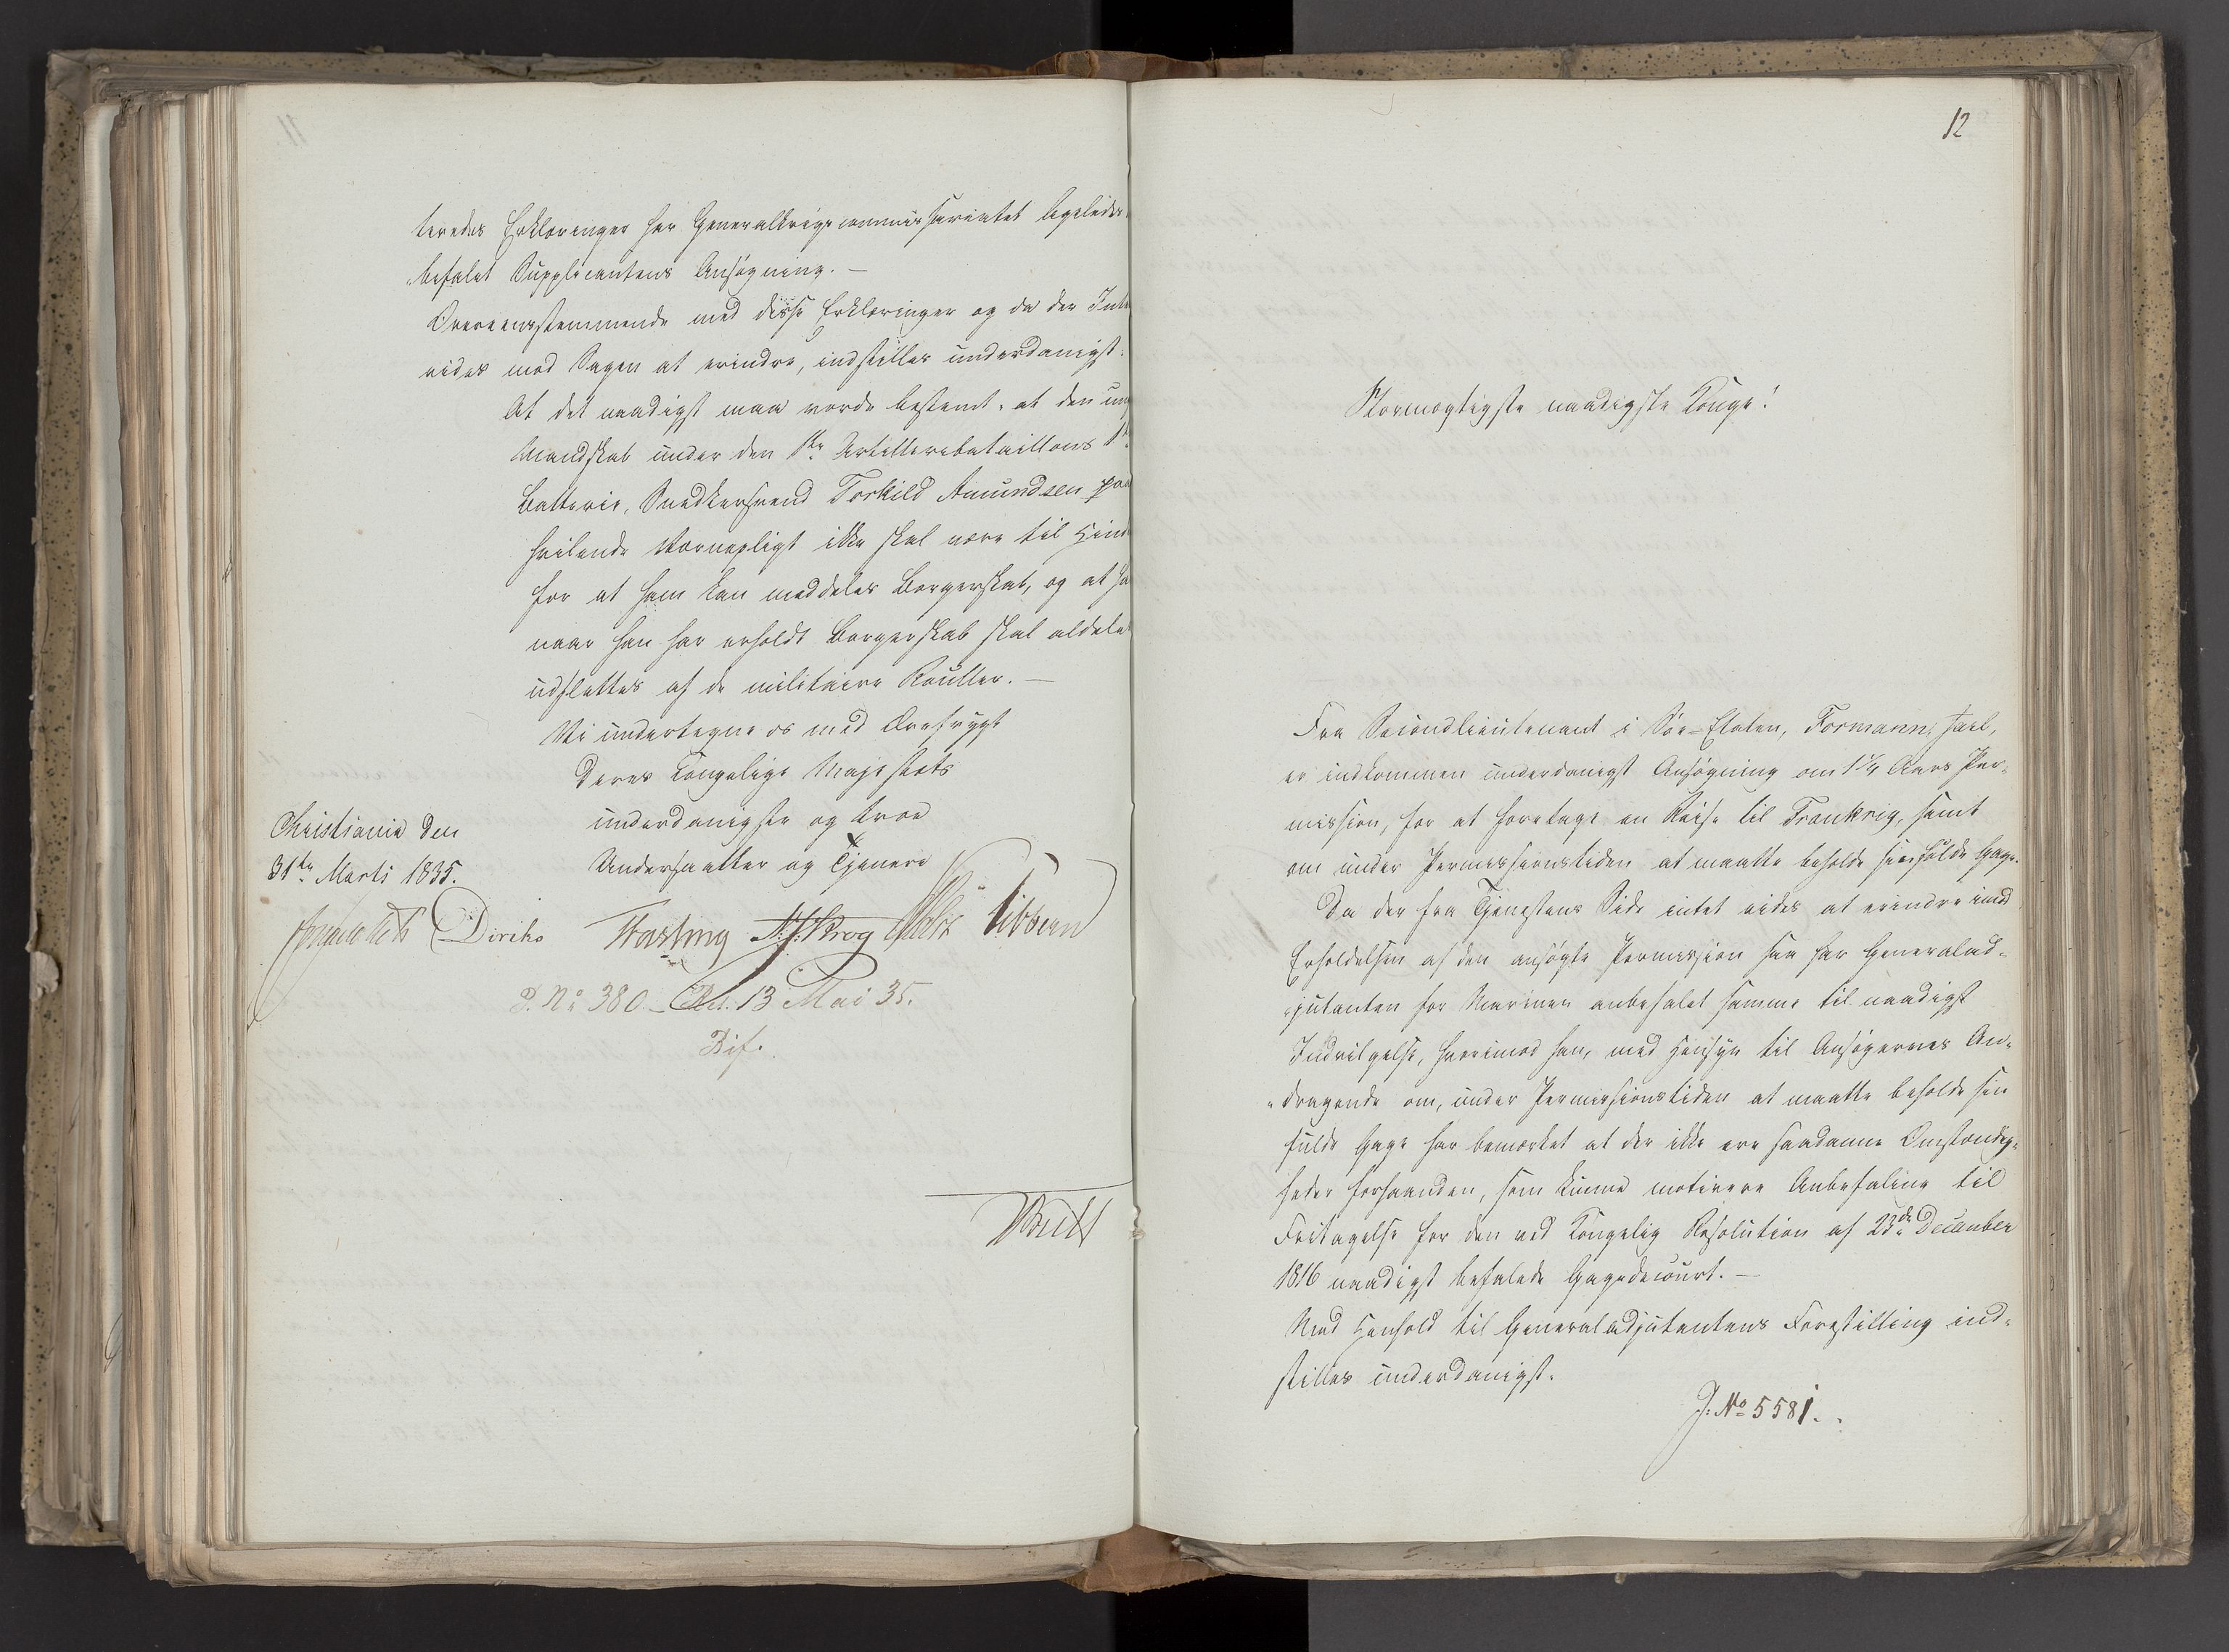 teredes Erklæringer har Generalkrigscommissariatet ligeledes
befalet Supplicantens Ansøgning. —
Overeensstemmende med disse Erklæringer og da der Intet
vides mod Sagen at erindre, indstilles underdanigst:
At det naadigst maa vorde bestemt, at den ung
Mandskab under den Artilleribataillons 1ste
Batterie, Snedkersvend Torkild Amundsen paa
hvilende Værnepligt ikke skal være til Hind
for at ham kan meddeles Borgerskab, og at ha
naar han har erholdt Borgerskab skal aldeles
udslettes af de militaire Rouller. —
Vi undertegne os med Ærefrygt
Deres Kongelige Majestæts
underdanigste og troe
Undersaatter og Tjenere
Christiania den
31te Marts 1835.
Diriks Vibe Sibbern
P. No 380. 13 Mai 35.
Bif.
12
Stormægtigste naadigste Konge!
Fra Secondlieutenant i Søe-Etaten, Formann,
er indkommen underdanigst Ansøgning om 1 1/4 Aars Per-
mission, for at foretage en Reise til Frankrig, samt
om under Permissionstiden at maatte beholde sin fulde Gage.
Da der fra Tjenestens Side intet vides at erindre imod
Erholdelsen af den ansøgte Permission saa har Generalad-
jutanten for Marinen anbefalet samme til naadigst
Indvilgelse, hvorimod han, med Hensyn til Ansøgerens An-
dragende om, under Permissionstiden at maatte beholde sin
fulde Gage har bemærket at der ikke ere saadanne Omstændig-
heder forhaanden, som kunne motivere Anbefaling til
Fritagelse for den ved Kongelig Resolution af 23de December
1816 naadigst befalede Gagedecourt. —
Med Henhold til Generaladjutantens Forestilling ind-
stilles underdanigst.
J: No 5581.